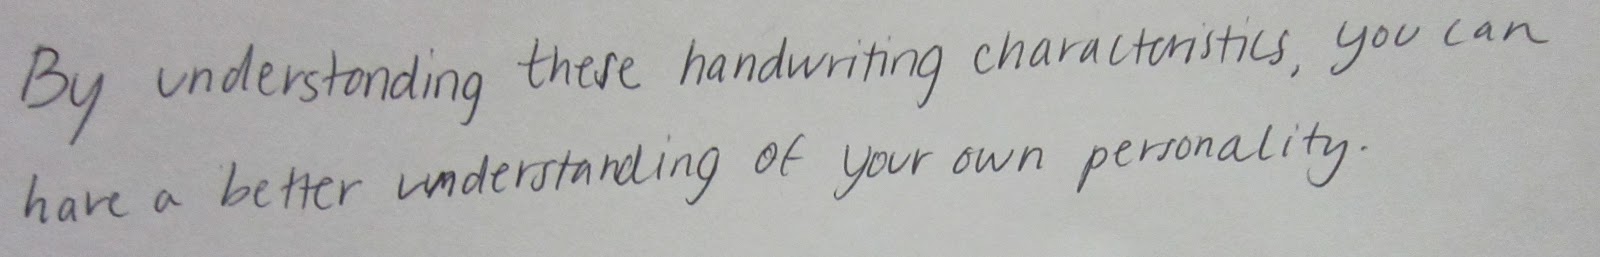 By understanding these handwriting characteristics, you can
have a better understanding of your own personality.